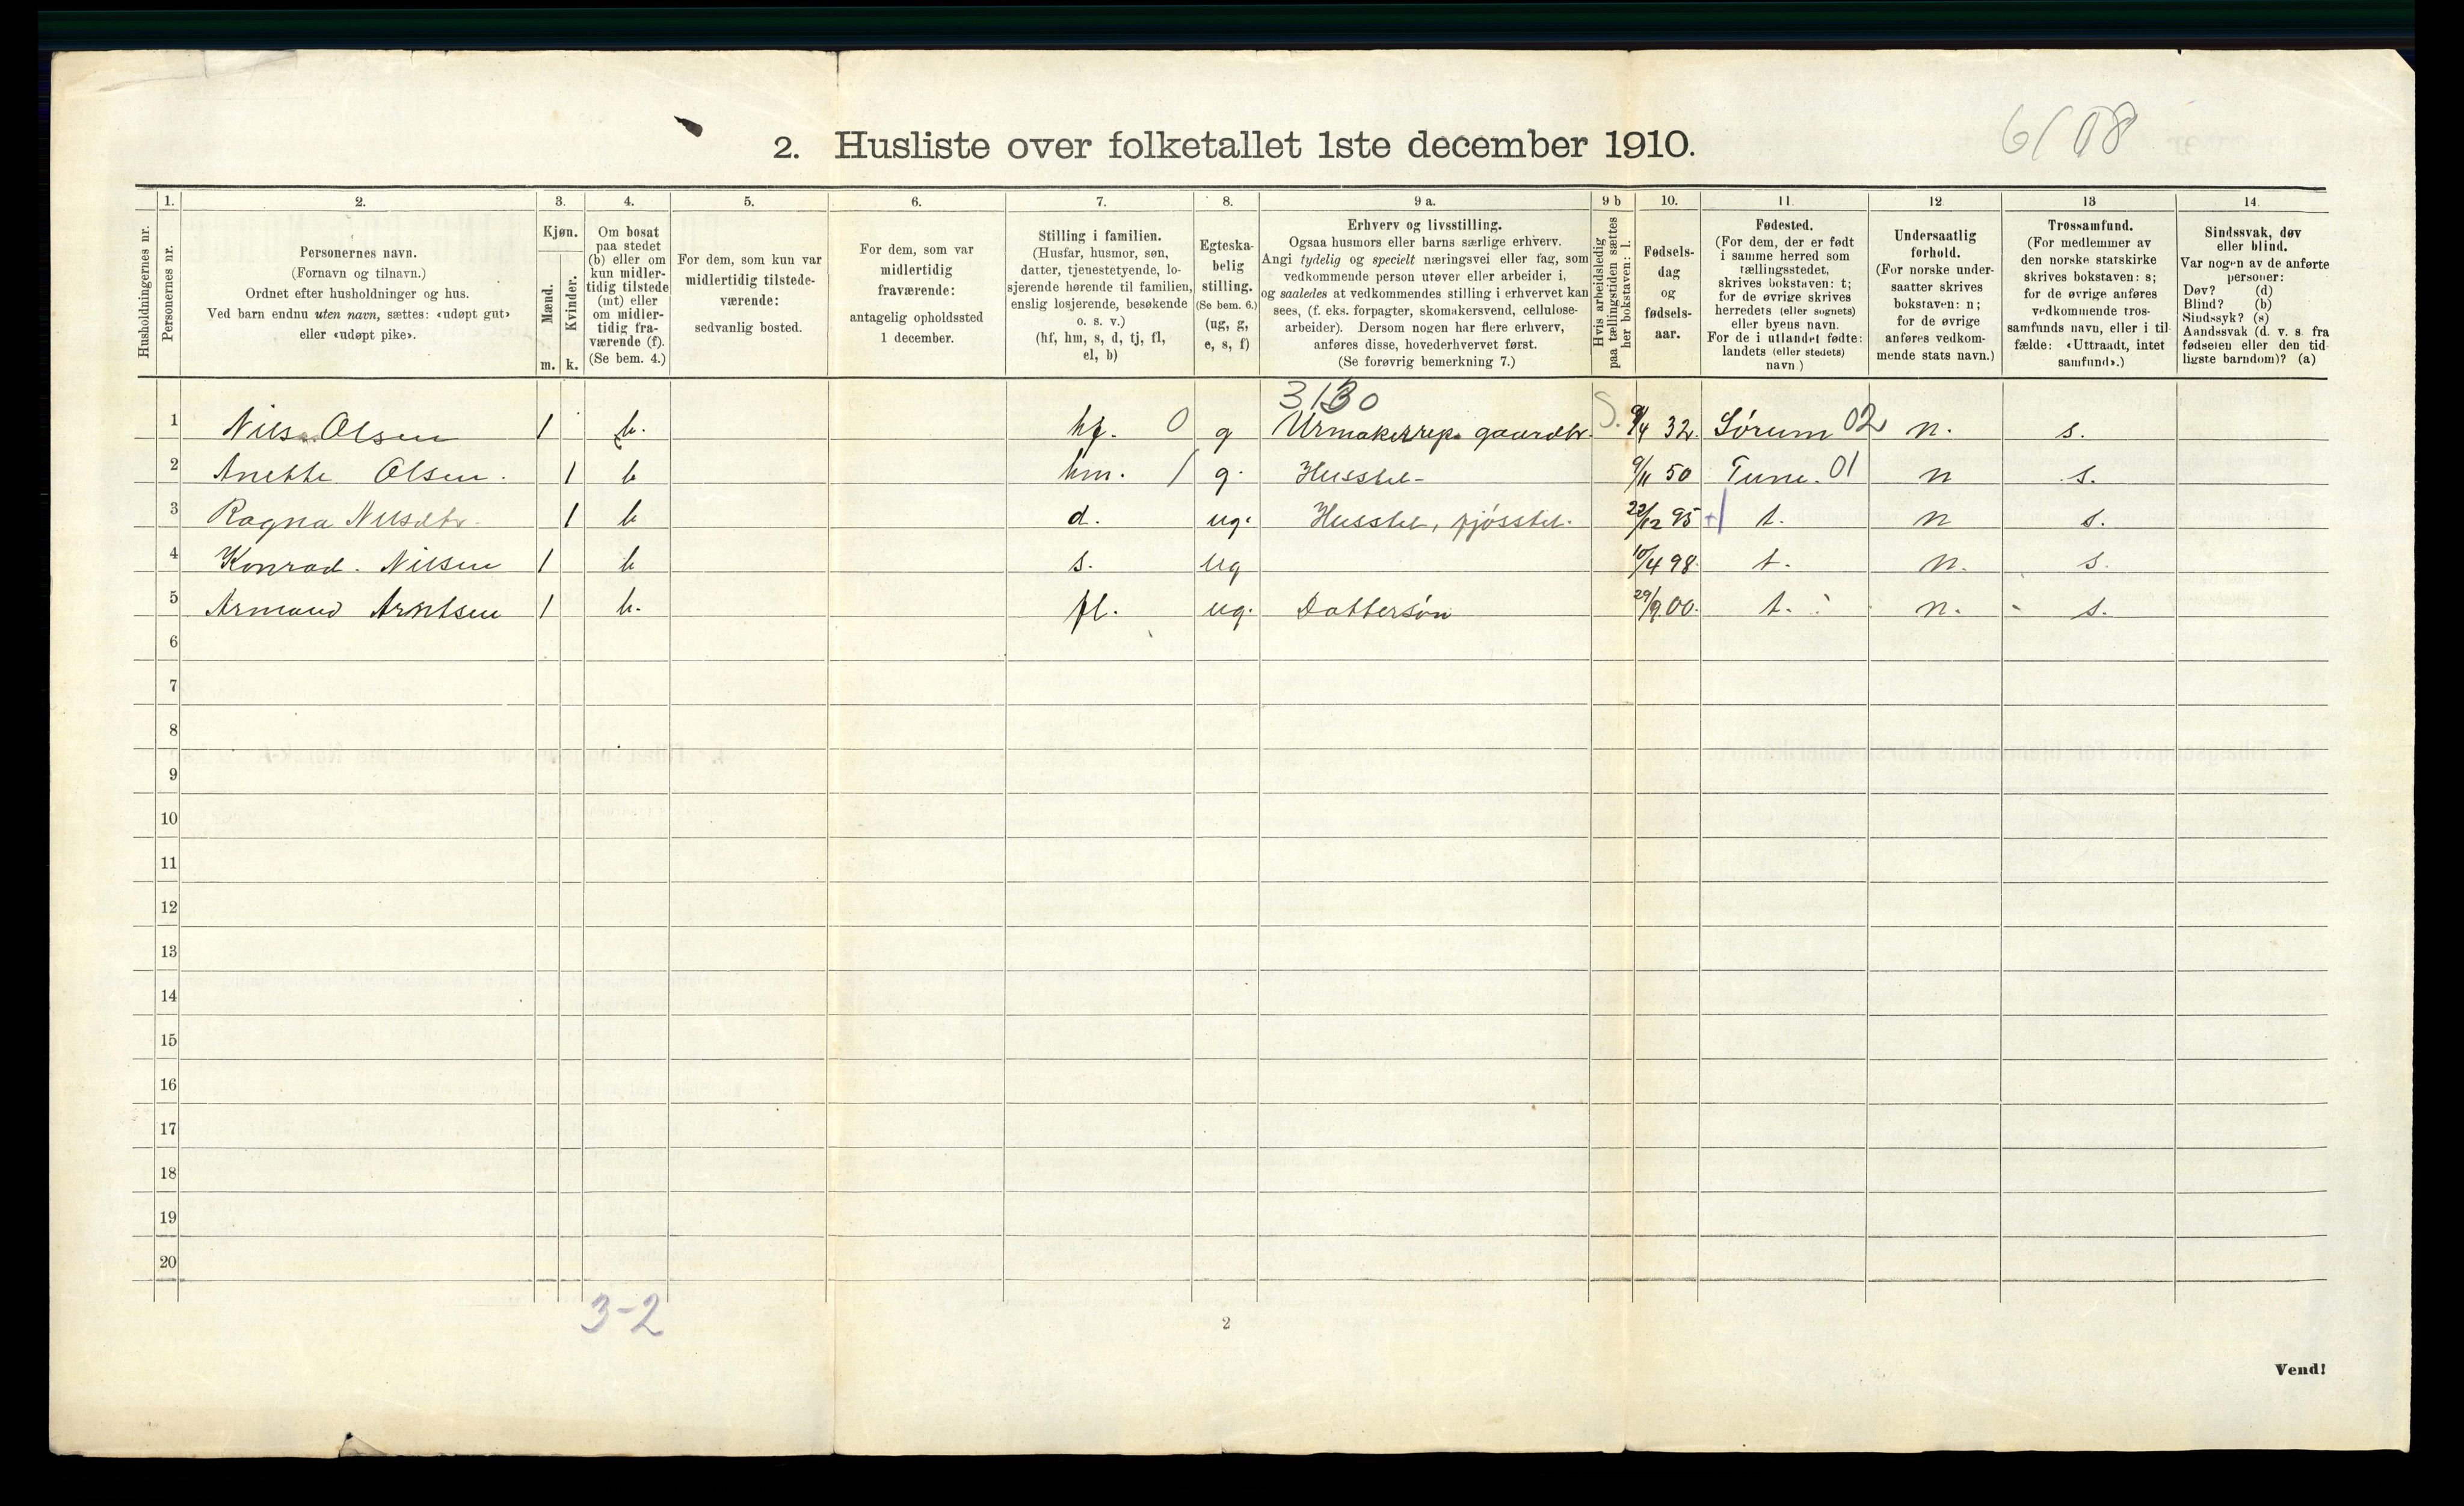 6/08
2. Husliste over folketallet 1ste december 1910.
Husholdningernes nr.
1.
Personernes nr.
2.
Personernes navn.
(Fornavn og tilnavn.)
Ordnet efter husholdninger og hus.
Ved barn endnu uten navn, sættes: «udøpt gut»
eller «udøpt pike».
3.
Kjøn.
Mænd.
Kvinder.
m. k.
4.
Om bosat
paa stedet
(b) eller om
kun midler-
tidig tilstede
(mt) eller
om midler-
tidig fra-
værende (f).
(Se bem. 4.)
5.
For dem, som kun var
midlertidig tilstede-
værende:
sedvanlig bosted.
6.
For dem, som var
midlertidig
fraværende:
antagelig opholdssted
1 december.
7.
Stilling i familien.
(Husfar, husmor, søn,
datter, tjenestetyende, lo-
sjerende hørende til familien,
enslig losjerende, besøkende
o. s. v.)
(hf, hm, s, d, tj, fl,
el, b)
8.
Egteska-
belig
stilling.
(Se bem. 6.)
(ug, g,
e, s, f)
9 a.
Erhverv og livsstilling.
Ogsaa husmors eller barns særlige erhverv.
Angi tydelig og specielt næringsvei eller fag, som
vedkommende person utøver eller arbeider i,
og saaledes at vedkommendes stilling i erhvervet kan
sees, (f. eks. forpagter, skomakersvend, cellulose-
arbeider). Dersom nogen har flere erhverv,
anføres disse, hovederhvervet først.
(Se forøvrig bemerkning 7.)
9 b
Hvis arbeidsledig
paa tællingstiden sættes
her bokstaven: l.
10.
Fødsels-
dag
og
fødsels-
aar.
11.
Fødested.
(For dem, der er født
i samme herred som
tællingsstedet,
skrives bokstaven: t;
for de øvrige skrives
herredets (eller sognets)
eller byens navn.
For de i utlandet fødte:
landets (eller stedets)
navn.)
12.
Undersaatlig
forhold.
(For norske under-
saatter skrives
bokstaven: n;
for de øvrige
anføres vedkom-
mende stats navn.)
13
Trossamfund.
(For medlemmer av
den norske statskirke
skrives bokstaven: s;
for de øvrige anføres
vedkommende tros-
samfunds navn, eller i til
fælde: «Uttraadt, intet
samfund».)
14.
Sindssvak, døv
eller blind.
Var nogen av de anførte
personer:
Døv? (d)
Blind? (b)
Sindssyk? (s)
Aandssvak (d. v. s. fra
fødselen eller den tid-
ligste barndom)? (a)
1 Nils Olsen 1 b. hf. 0 g Urmakerrep. gaardbr. S. 9/4 32. Sørum 02 n. s.
2 Anette Olsen. 1 b hm. 1 g. Husstel- 9/11 50 Tune. 01 n s.
3 Ragna Nilsdtr. 1 b d. ug. Husstel, fjøsstel. 22/12 95 t. n s.
4 Konrad. Nilsen 1 b s. ug 10/4 98. t. n. s.
5 Armand Arntsen 1 b. fl. ug. Dattersøn 29/9 00. t. n. s.
6
7
8
9
10
11
12
13
14
15
16
17
18
19
20
3-2
2
Vend!